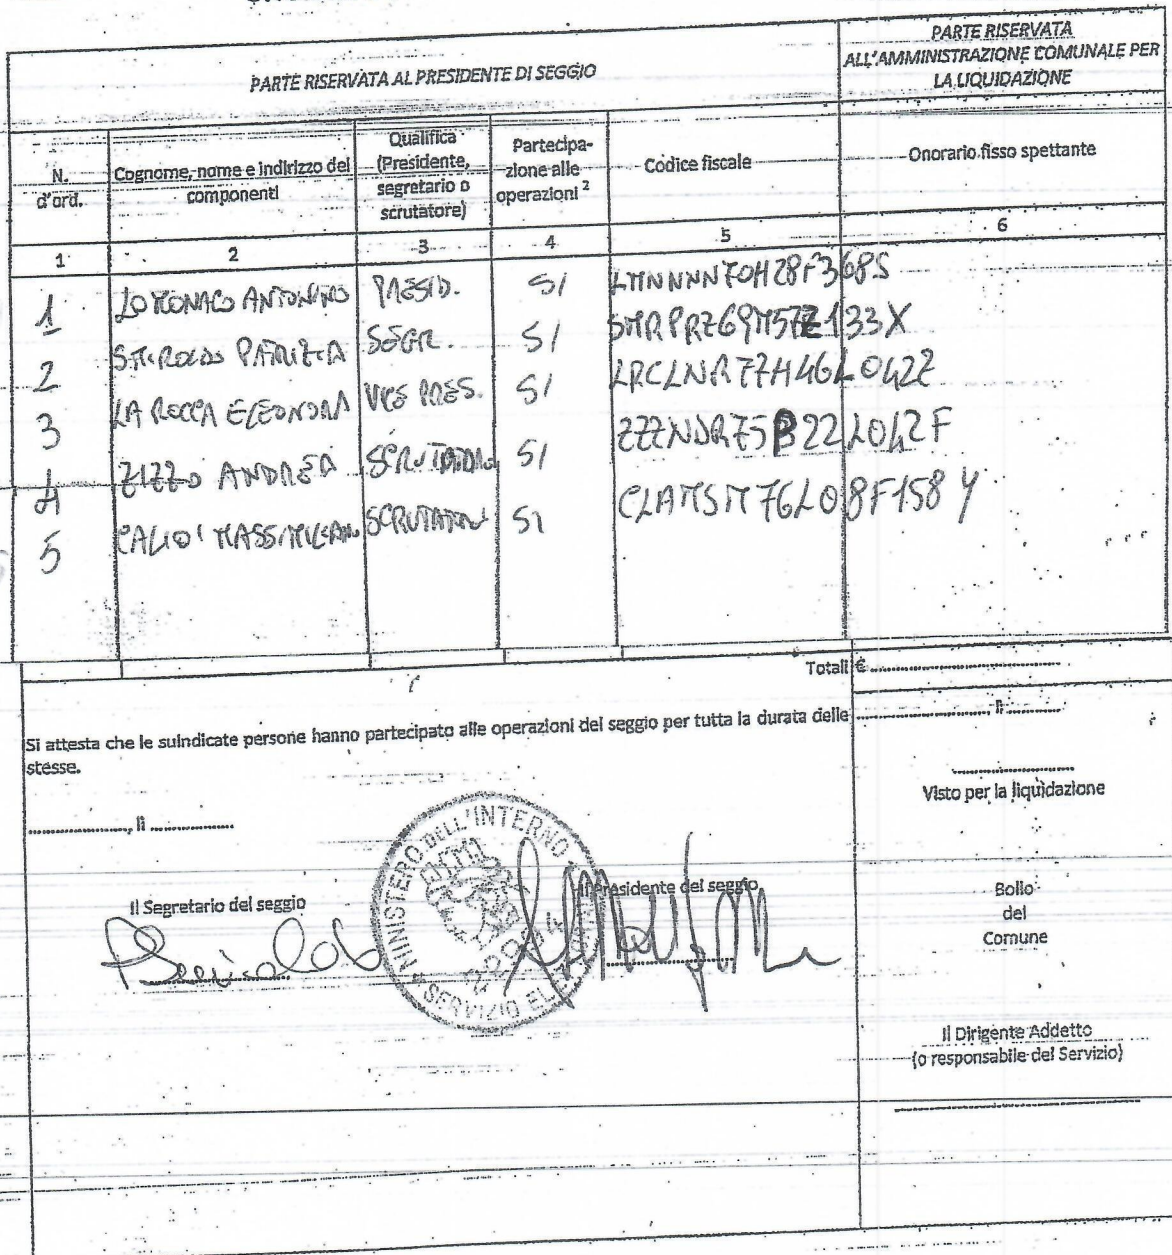 PARTE RISERVATA AL PRESIDENTE DI SEGGIO
PARTE RISERVATA
ALL'AMMINISTRAZIONE COMUNALE PER
LA LIQUIDAZIONE
N.
d'ord.
Cognome, nome e indirizzo dei
componenti
Qualifica
(Presidente,
segretario o
scrutatore)
Partecipa-
zione alle
operazioni 2
Codice fiscale
Onorario fisso spettante
1 2 3 4 5 6
1 LO MONACO ANTONINO PRESID. SI LMNNNN70H28F368S
2 SMIROLDO PATRIZIA SEGR. SI SMRPRZ69M57Z133X
3 LA ROCCA ELEONORA VICE PRES. SI LRCLNR77H46L042Z
4 ZIZZO ANDREA SCRUTATORE SI ZZZNDR75B22L042F
5 CALIO' MASSIMILIAN SCRUTATORE SI CLAMSM76L08F158Y
Totali € ........................
Si attesta che le suindicate persone hanno partecipato alle operazioni del seggio per tutta la durata delle
stesse.
........................, lì ...............
........................, lì ...............
Visto per la liquidazione
MINISTERO DELL'INTERNO
SERVIZIO
Il Segretario del seggio
Il Presidente del seggio
Bollo
del
Comune
Il Dirigente Addetto
(o responsabile del Servizio)